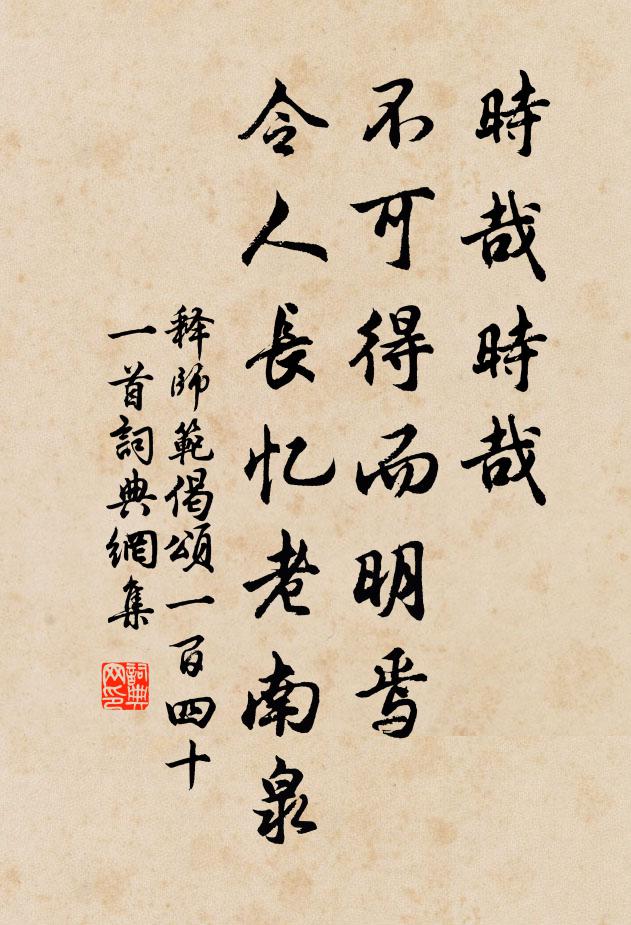 時哉時哉
不可得而明焉
令人長忆老南泉
释師範偈頌一百四十
一首詞典網集
詞典
网印